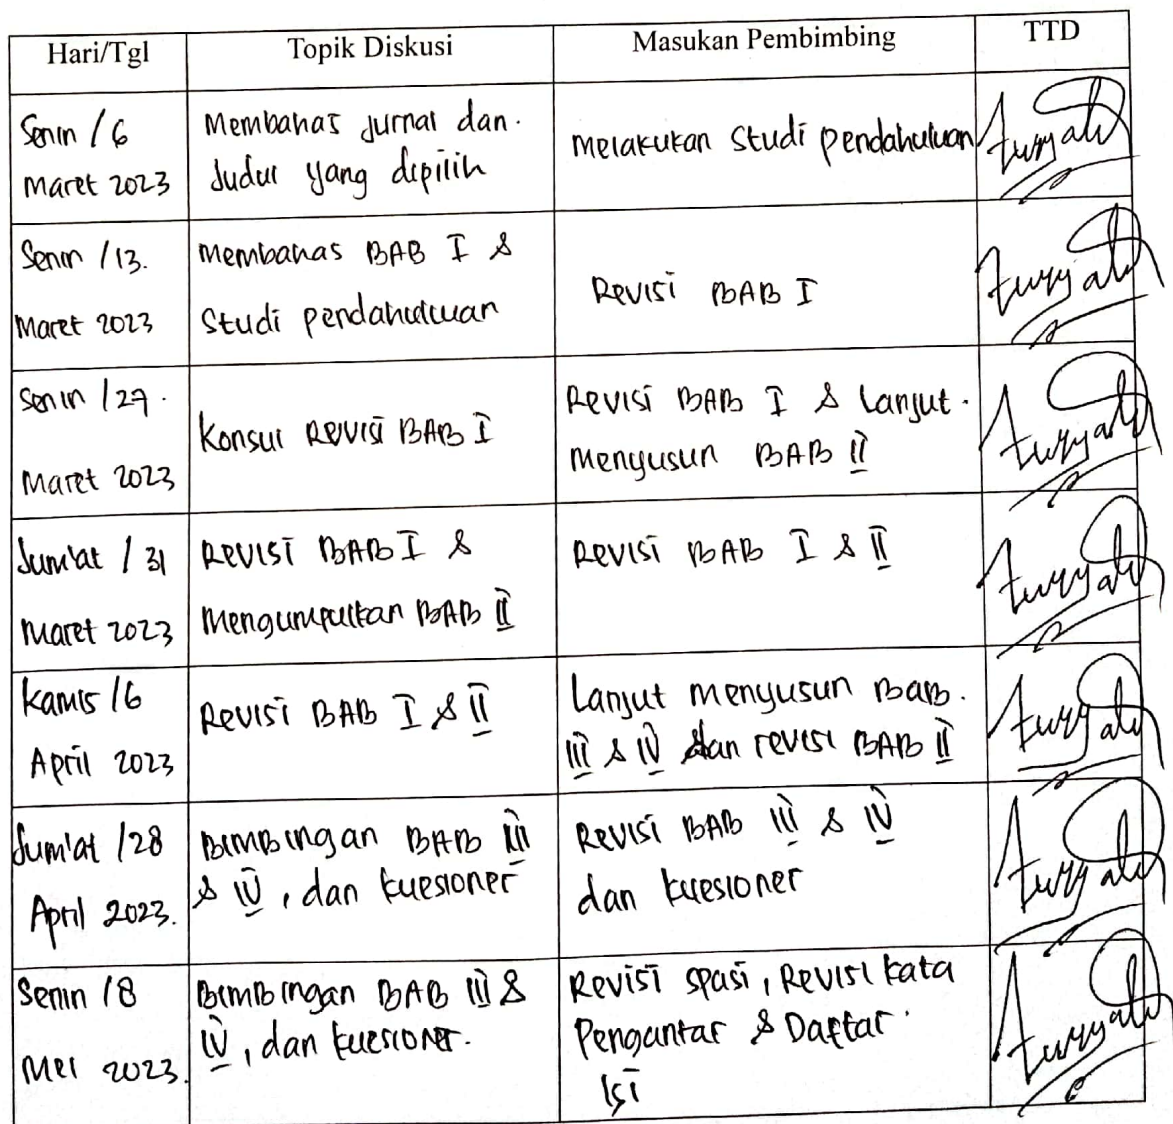 Hari/Tgl
Topik Diskusi
Masukan Pembimbing
TTD
Senin / 6
Maret 2023
Membahas Jurnal dan
Judul yang dipilih
Melakukan Studi pendahuluan
Senin / 13.
Maret 2023
Membahas BAB I &
Studi pendahuluan
Revisi BAB I
Senin / 27.
Maret 2023
Konsul Revisi BAB I
Revisi BAB I & Lanjut.
Menyusun BAB II
Jum'at / 31
Maret 2023
Revisi BAB I &
Mengumpulkan BAB II
Revisi BAB I & II
Kamis / 6
April 2023
Revisi BAB I & II
Lanjut menyusun Bab.
III & IV dan revisi BAB II
Jum'at / 28
April 2023.
Bimbingan BAB III
& IV, dan kuesioner
Revisi BAB III & IV
dan kuesioner
Senin / 8
Mei 2023.
Bimbingan BAB III &
IV, dan kuesioner.
Revisi spasi, Revisi kata
Pengantar & Daftar
Isi